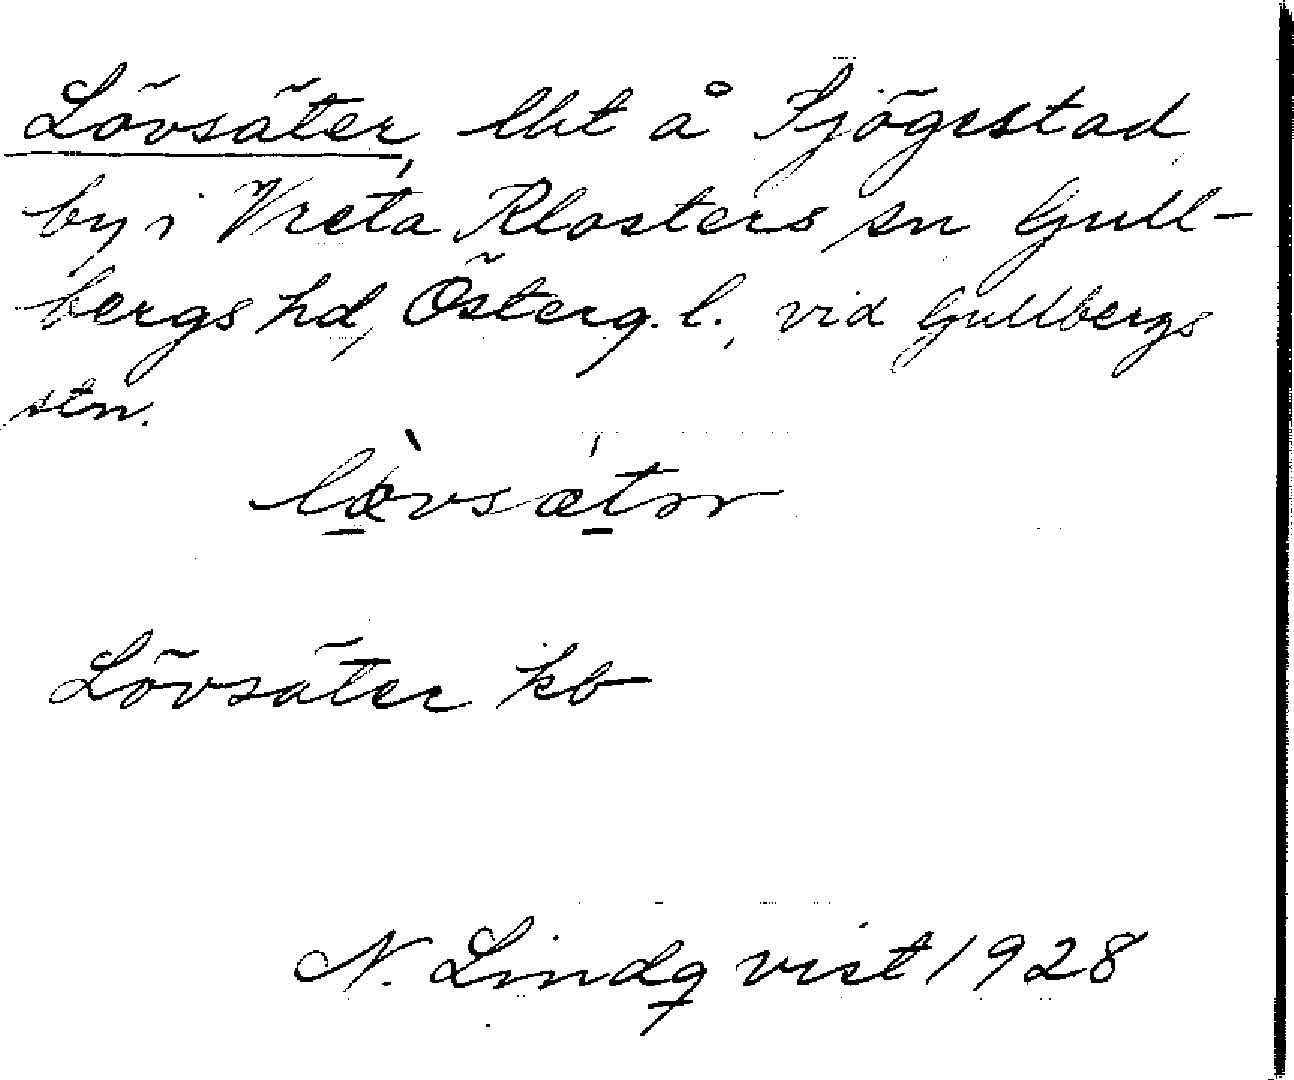 Lövsäter, lht å Sjögestad
by i Vreta Klosters sn Gull-
bergs hd, Österg. l., vid Gullbergs
stn.
lœ̀vsætər
Lövsäter kb
N. Lindqvist 1928